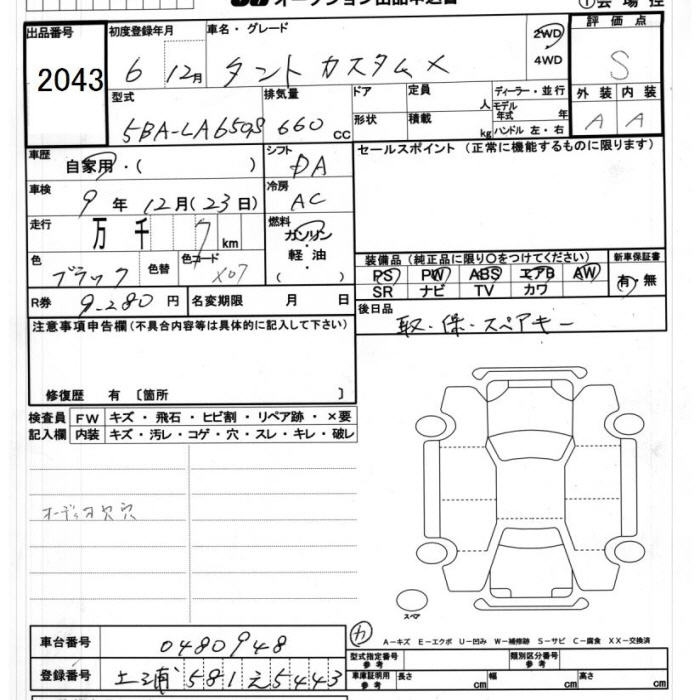 オークション出品申込書 ①会場控
出品番号 初度登録年月 車名・グレード 評価点
2043 6 12月 タント カスタム X 2WD 4WD S
型式 排気量 ドア 定員 ディーラー・並行 外装 内装
人 モデル年式 年
5BA-LA650S 660 cc 形状 積載 kg ハンドル 左・右 A A
車歴 シフト セールスポイント (正常に機能するものに限ります)
自家用・( ) DA
車検 冷房
9年 12月(23日) AC
走行 燃料
万 千 7 km ガソリン・軽油・( )
色 色替 色コード 装備品 (純正品に限り〇をつけてください) 新車保証書
ブラック X07 PS PW ABS エアB AW 有・無
SR ナビ TV カワ
R券 9,280円 名変期限 月 日 後日品
取・保・スペアキー
注意事項申告欄(不具合内容等は具体的に記入して下さい)
修復歴 有 〔箇所 〕
検査員 FW キズ・飛石・ヒビ割・リペア跡・×要
記入欄 内装 キズ・汚レ・コゲ・穴・スレ・キレ・破レ
オーディオ欠穴
スペア
カ A－キズ E－エクボ U－凹み W－補修跡 S－サビ C－腐食 XX－交換済
車台番号 0480948 型式指定番号 参考 類別区分番号 参考
登録番号 土浦 581 え 5443 車庫証明用 参考 長さ cm 幅 cm 高さ cm